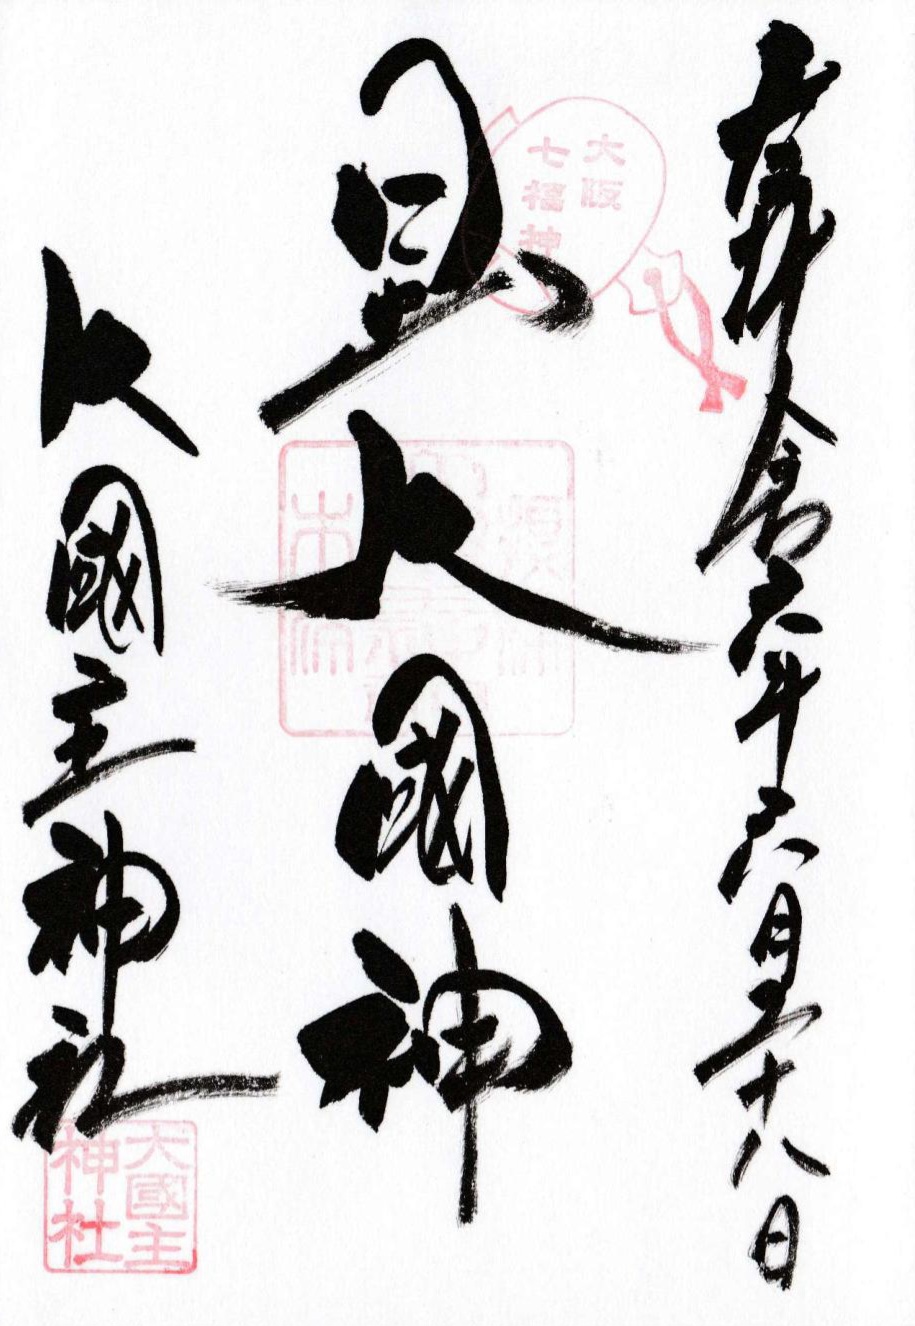 奉拝 令和六年六月二十八日
大阪
七福神
日出大國神
大國主神社
大國主
神社